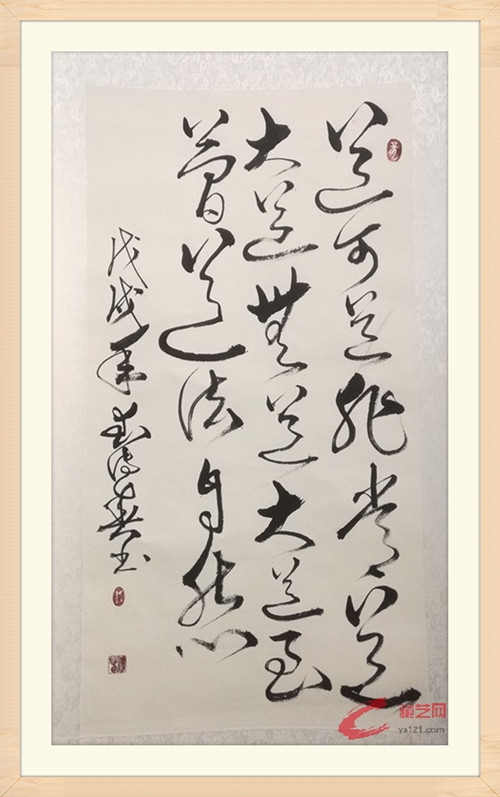 道可道非常道
大道無道大道至
簡道法自然
戊戌年
书
艺网
ya121.com